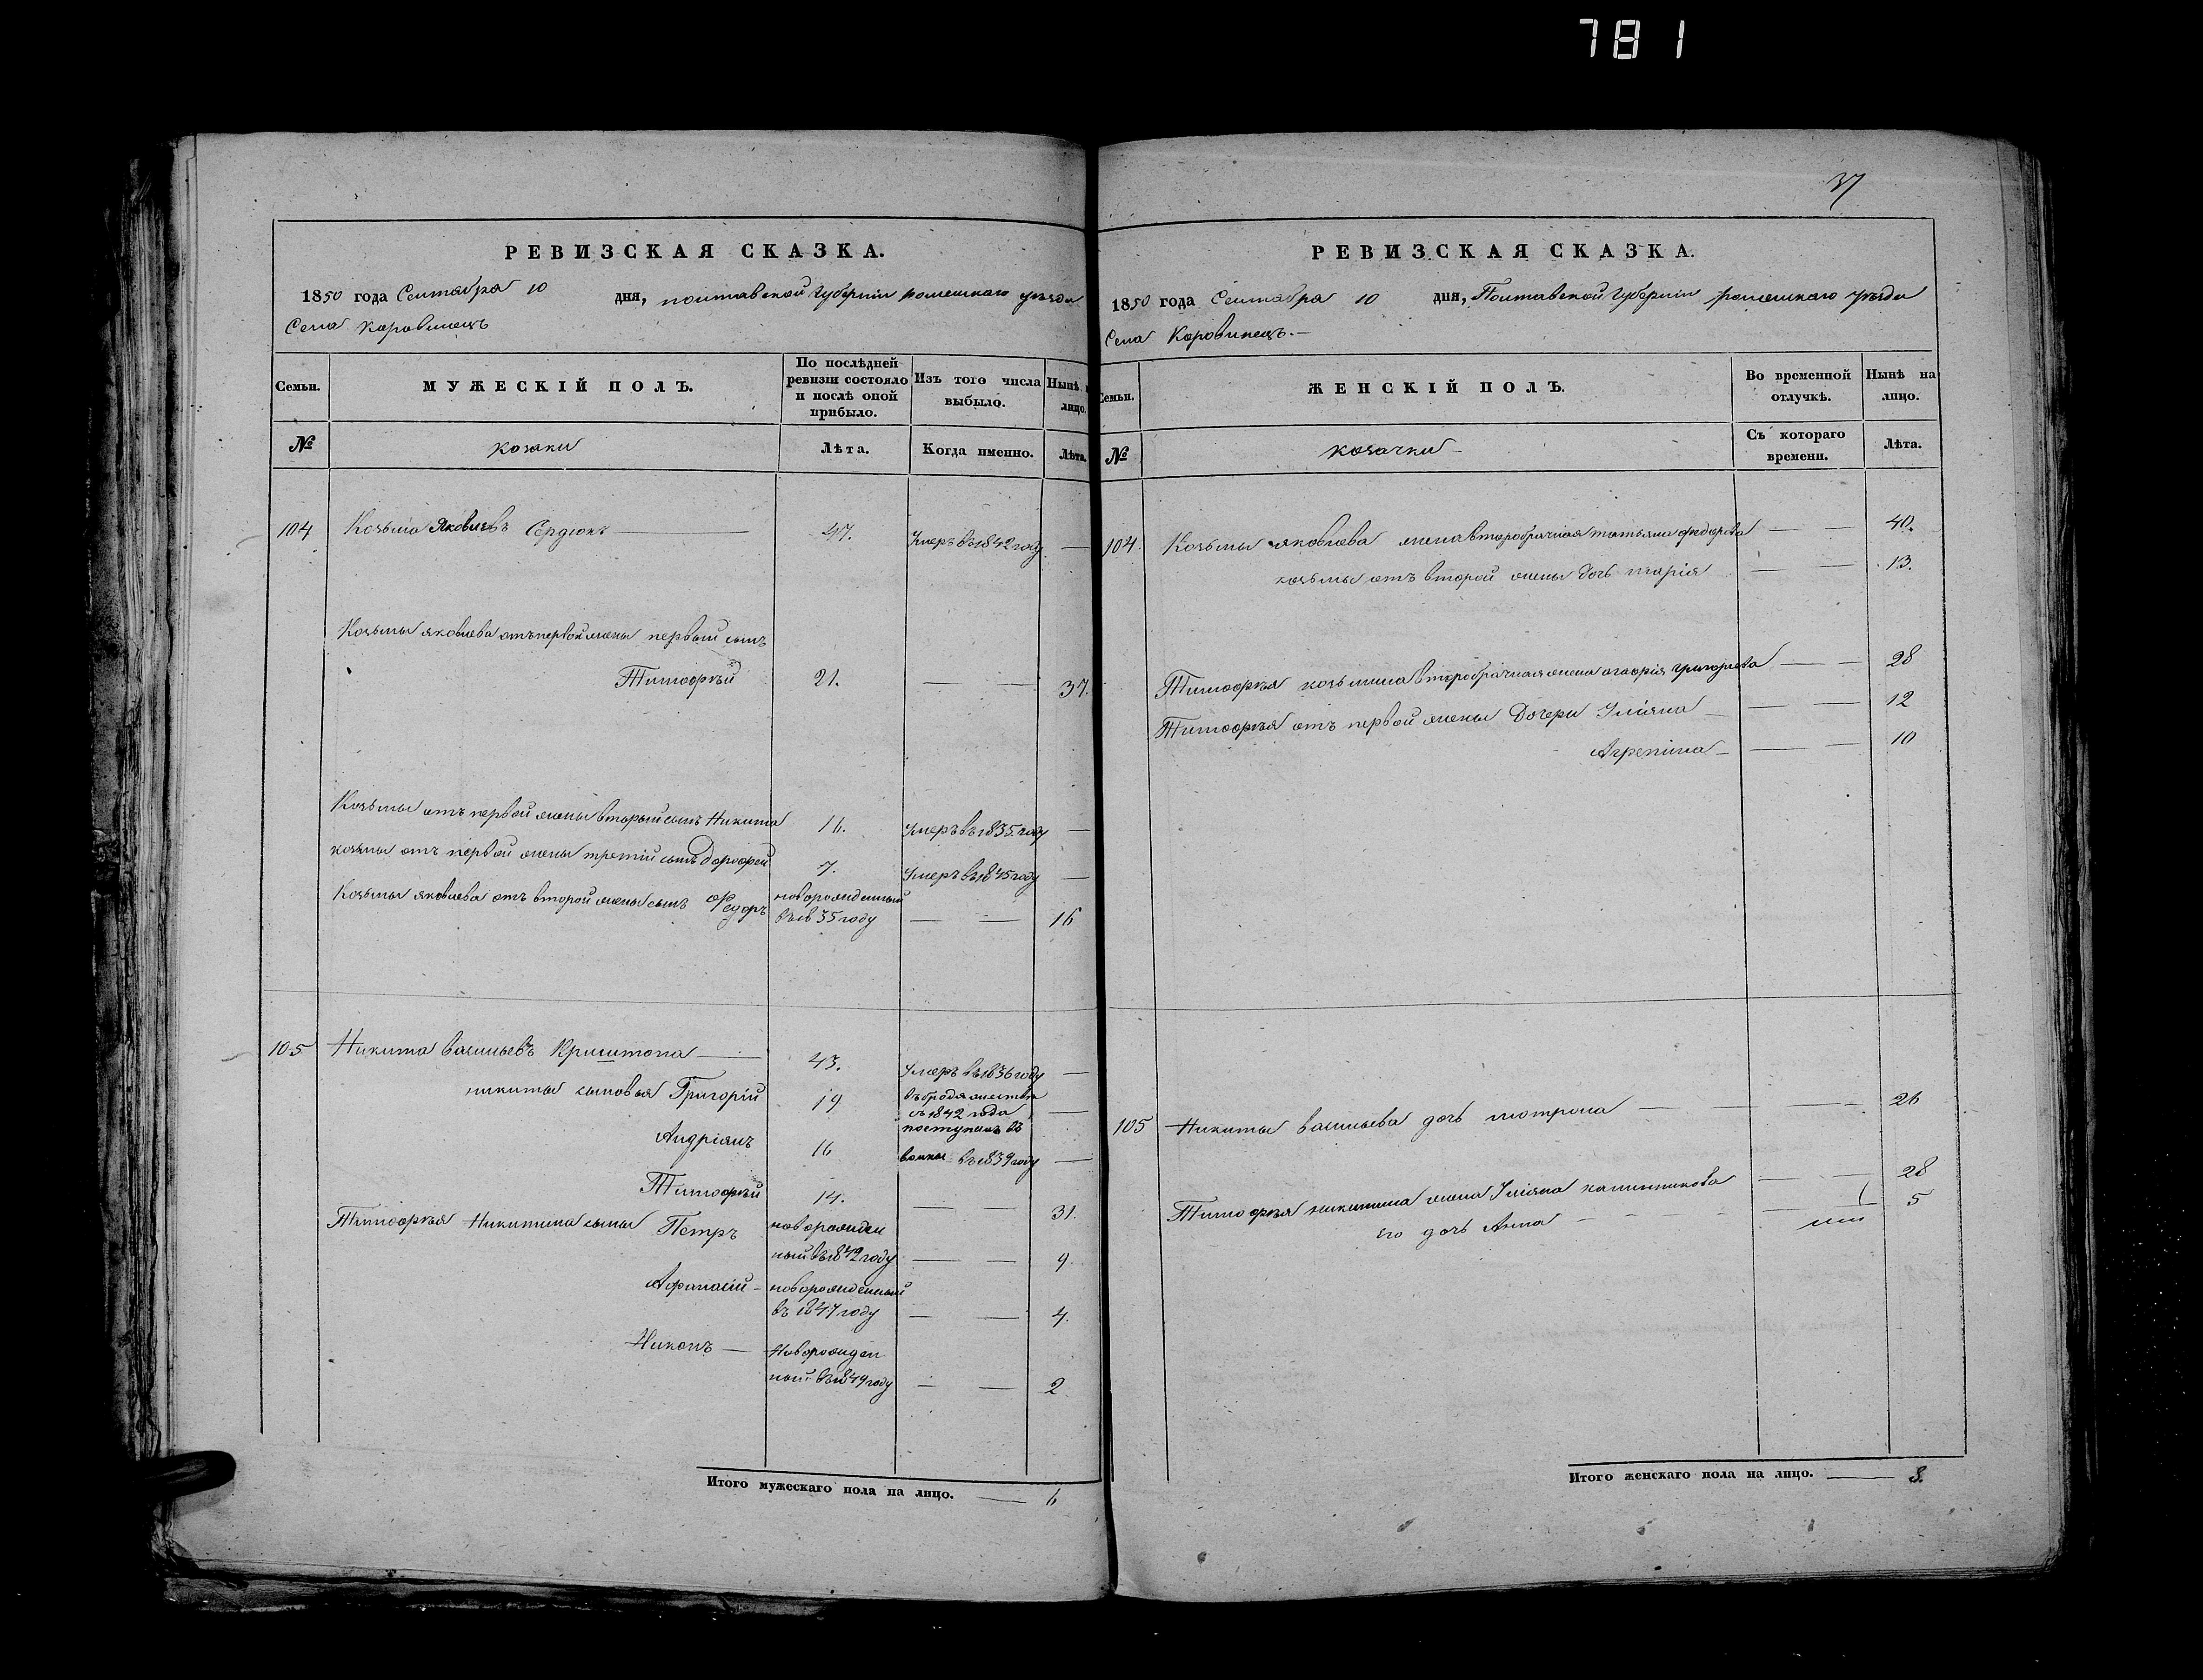 781
37
РЕВИЗСКАЯ СКАЗКА.
1850 года Сентября 10 дня, полтавской Губерніи роменскаго уѣзда
Села Коровинецъ
Семьи. МУЖЕСКІЙ ПОЛЪ. По послѣдней ревизіи состояло и послѣ оной прибыло. Изъ того числа выбыло. Нынѣ на лицо.
№ козаки Лѣта. Когда именно. Лѣта.
104 Козьма Яковлевъ Сердюкъ 47. Умеръ въ 1842 году
Козьмы яковлева отъ первой жены первый сынъ
Тимофѣй 21. 37.
Козьмы отъ первой жены вторый сынъ Никита 16. Умеръ въ 1835. году
козмы отъ первой жены третій сынъ Дорофей 7. Умеръ въ 1845 году
Козьмы яковлева отъ второй жены сынъ Федоръ новорожденный въ 1835 году 16
105 Никита васильевъ Криштопа 43. Умеръ въ 1836 году
никиты сыновья Григорій 19 въ бродяжествѣ съ 1842 года
Андріянъ 16 поступилъ въ воины въ 1839 году
Тимофѣй 14. 31.
Тимофѣя Никитина сыны Петръ новорожденный въ 1842 году 9
Афанасій новорожденный въ 1847 году 4.
Никонъ Новорожденный въ 1849 году 2
Итого мужескаго пола на лицо. 6
РЕВИЗСКАЯ СКАЗКА.
1850 года Сентября 10 дня, Полтавской Губерніи роменскаго уѣзда
Села Коровинецъ.
Семьи. ЖЕНСКІЙ ПОЛЪ. Во временной отлучкѣ. Нынѣ на лицо.
№ козачки Съ котораго времени. Лѣта.
104. Козьмы яковлева жена второбрачная татьяна федорова 40.
козьмы отъ второй жены дочь марія 13.
Тимофѣя козьмина второбрачная жена агафія григорьева 28
Тимофѣя отъ первой жены Дочери Уліяна 12
Агрепина 10
105 Никиты васильева дочь мотрона 26
Тимофѣя никитина жена Уліяна калинникова 28
его дочь Анна 5
Итого женскаго пола на лицо. 8.